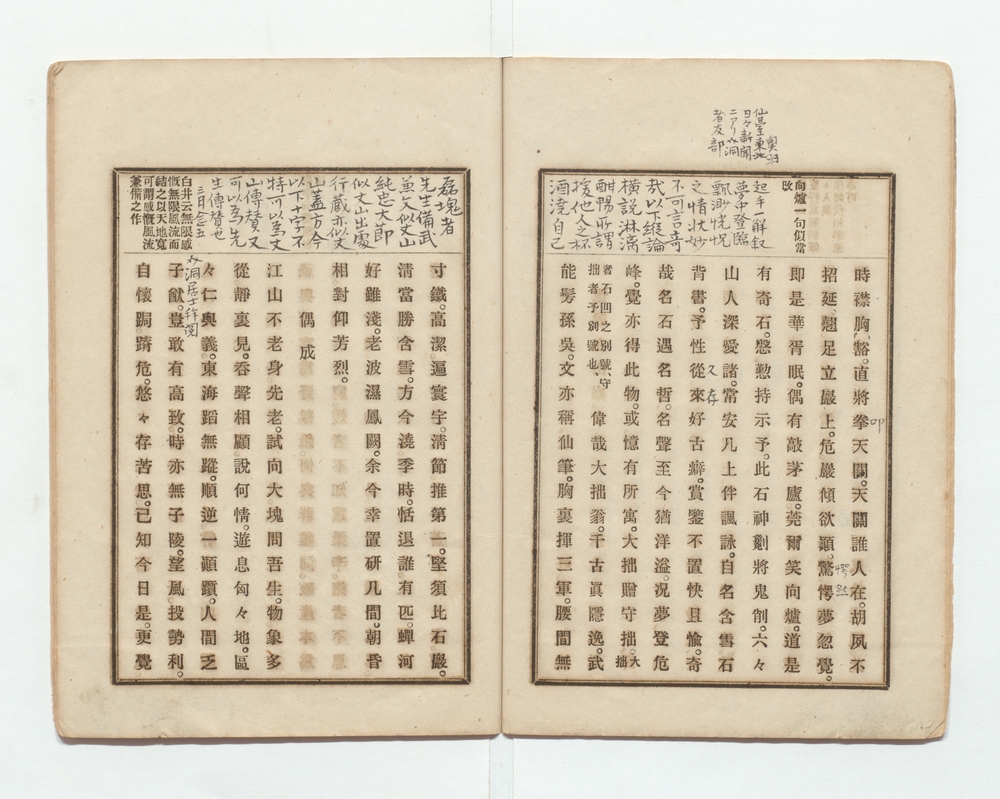 奧羽
仙臺東北
日々新聞
ニアリ
者友部
向爐一句似當
改
起手一解叙
夢中登臨
飄渺恍惚
之情狀妙
不可言奇
哉以下縱論
橫說淋漓
酣暢所謂
援他人之杯
酒澆自己
時襟胸豁。直將拳天關。天關誰人在。胡夙不
叩
招延。翹足立巖上。危巖傾欲顚。驚愕夢忽覺。
愕然
即是華胥眠。偶有敲茅廬。莞爾笑向爐。道是
有奇石。慇懃持示予。此石神剜將鬼削。六々
山人深愛諸。常安几上伴諷詠。自名含雪石
又存
背書。予性從來好古癖。賞鑒不置快且愉。奇
哉名石遇名哲。名聲至今猶洋溢。况夢登危
峰。覺亦得此物。或憶有所寓。大拙贈守拙。大拙
者石凹之別號、守
拙者予別號也、
偉哉大拙翁。千古眞隱逸。武
能髣孫吳。文亦稱仙筆。胸裏揮三軍。腰間無
磊塊者
先生備武
兼文似文山
純忠大節
似文山出處
行藏亦似文
山蓋方今
以下十字不
特可以爲文
山傳賛又
可以爲先
生傳賛也
三月念五
白井云無限感
慨無限風流而
結之以天地寬
可謂感慨風流
兼備之作
寸鐵。高潔遍寰宇。清節推第一。堅須比石巖。
清當勝含雪。方今澆季時。恬退誰有匹。蟬河
好雖淺。老波濕鳳闕。余今幸置研几間。朝昏
相對仰芳烈。
偶成
江山不老身先老。試向大塊問吾生。物象多
從靜裏見。呑聲相顧說何情。遊息匈々地。區
々仁與義。東海蹈無蹤。順逆一顚躓。人間乏
洞居士拜閱
子猷。豈敢有高致。時亦無子陵。望風投勢利。
自懷跼蹐危。悠々存苦思。已知今日是。更覺